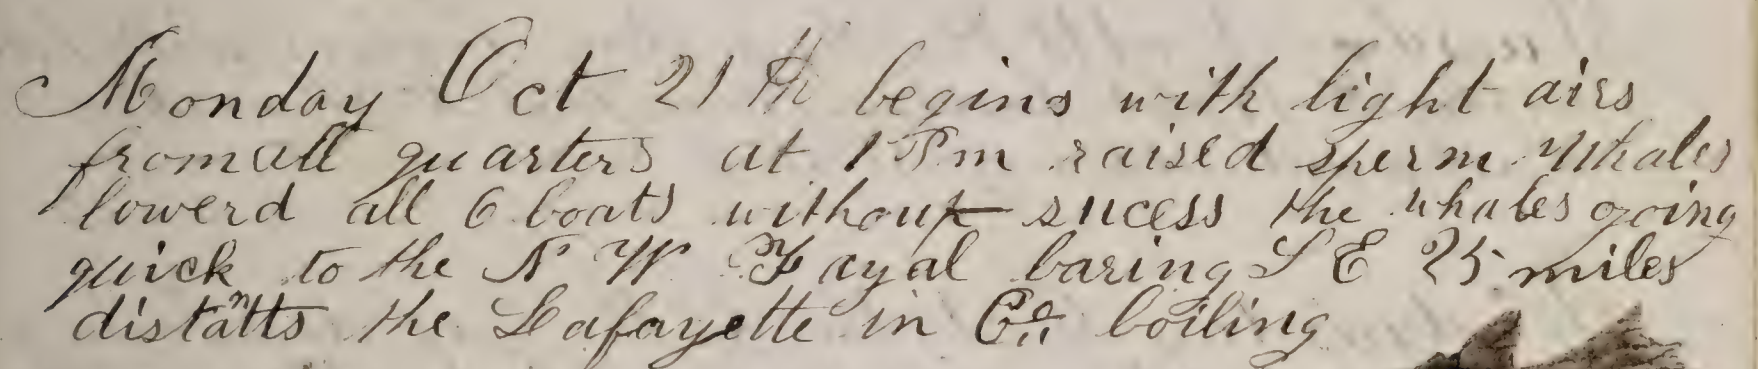 Monday Oct 21th begins with light airs
from all quarters at 1 Pm raised sperm Whales
lowerd all 6 boats without sucess the whales going
quick to the N W Fayal baring S E 25 miles
distants the Lafayette in Co. boiling